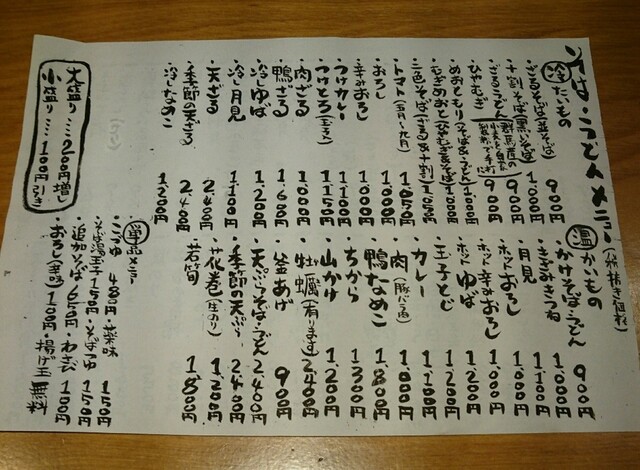 そば・うどんメニュー
(税抜き価格)
冷たいもの
・ざるそば(並そば) 900円
・十割そば(黒いそば) 1,000円
・ざるうどん 900円
・ひやむぎ 900円
・めおともり(そば&うどん) 1,000円
・むぎめおと(ひやむぎ&そば) 1,000円
・二色そば(ざる&十割)
・トマト(五月〜九月) 1,050円
・おろし 1,000円
・辛みおろし 1,000円
・つけカレー 1,100円
・つけとろ(玉子) 1,150円
・肉ざる 1,100円
・鴨ざる 1,600円
・冷しゆば 1,200円
・冷し月見 1,100円
・天ざる 2,400円
・季節の天ざる 2,400円
・冷しなめこ 1,200円
大盛り…200円増し
小盛り…100円引き
温かいもの
・かけそば・うどん 900円
・きざみきつね 1,000円
・月見 1,100円
・ホットおろし 1,000円
・ホット辛みおろし 1,000円
・ホットゆば 1,200円
・玉子とじ 1,200円
・カレー 1,100円
・肉(豚バラ肉) 1,000円
・鴨なめこ 1,800円
・ちから 1,300円
・山かけ 1,100円
・牡蠣(有ります) 2,400円
・釜あげ 900円
・天ぷらそば・うどん 2,400円
・季節の天ぷら 2,400円
・花巻(生のり) 1,200円
・若筍 1,800円
単品メニュー
・こつゆ 400円
・薬味 150円
・そば湯玉子 150円
・そばつゆ 150円
・追加そば 650円
・わさび 100円
・おろし(辛味) 100円
・揚げ玉 無料